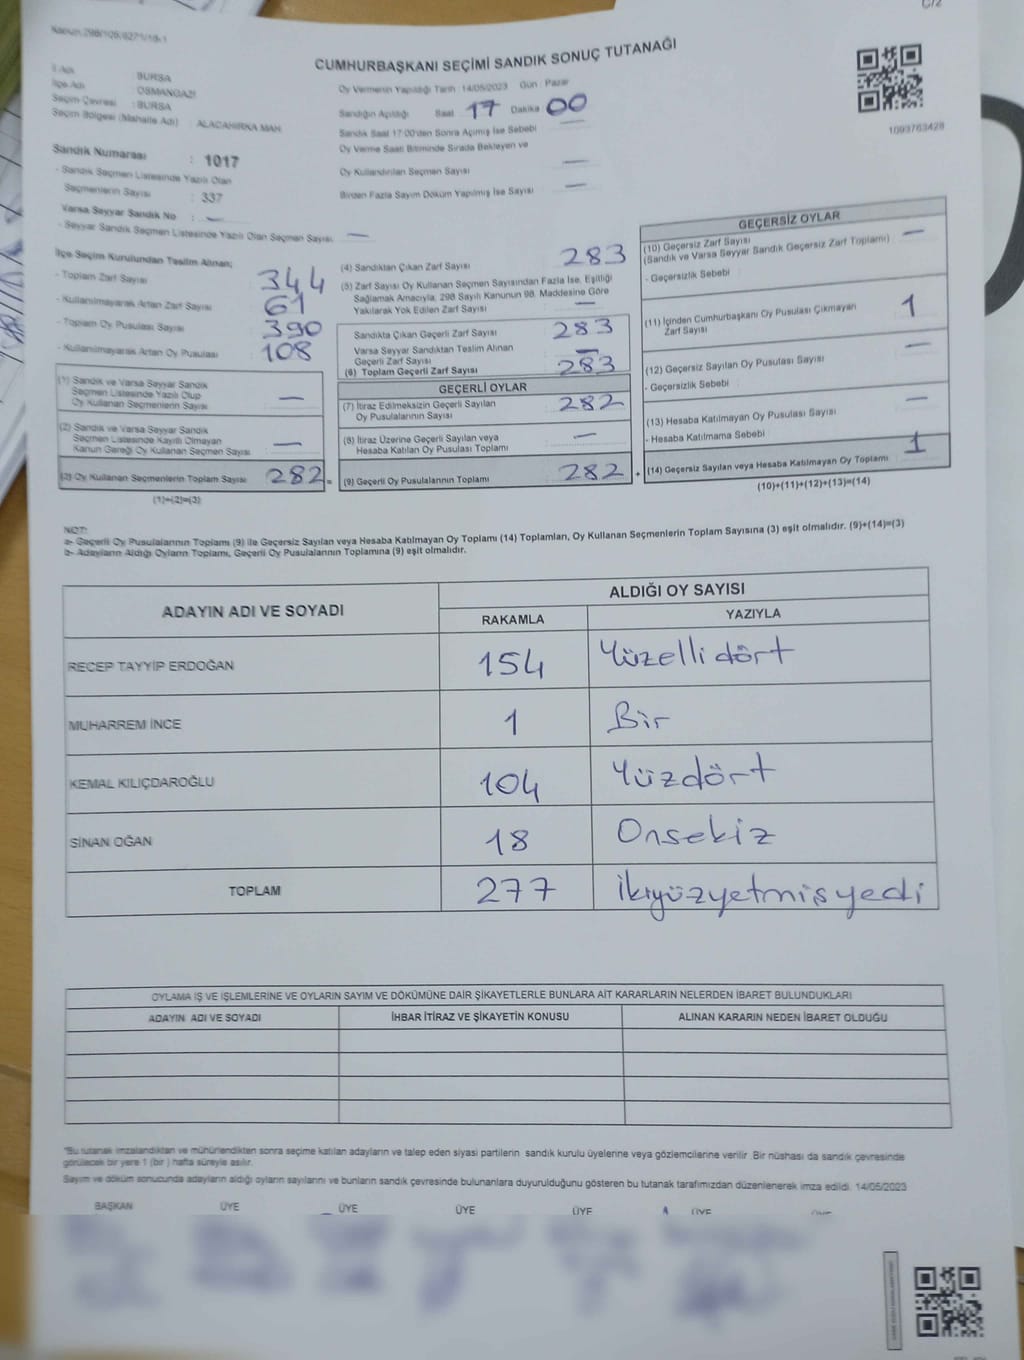 CUMHURBAŞKANI SEÇİMİ SANDIK SONUÇ TUTANAĞI
İl Adı : BURSA
İlçe Adı : OSMANGAZİ
Seçim Çevresi : BURSA
Seçim Bölgesi (Mahalle Adı) : ALACAHIRKA MAH
Oy Vermenin Yapıldığı Tarih : 14/05/2023 Gün : Pazar
Sandığın Açıldığı Saat 17 Dakika 00
Sandık Saat 17:00'den Sonra Açılmış İse Sebebi —
Oy Verme Saati Bitiminde Sırada Bekleyen ve
Oy Kullandırılan Seçmen Sayısı —
Birden Fazla Sayım Döküm Yapılmış İse Sayısı —
1093763428
Sandık Numarası : 1017
- Sandık Seçmen Listesinde Yazılı Olan
Seçmenlerin Sayısı : 337
Varsa Seyyar Sandık No : —
- Seyyar Sandık Seçmen Listesinde Yazılı Olan Seçmen Sayısı —
İlçe Seçim Kurulundan Teslim Alınan;
- Toplam Zarf Sayısı 344
- Kullanılmayarak Artan Zarf Sayısı 61
- Toplam Oy Pusulası Sayısı 390
- Kullanılmayarak Artan Oy Pusulası 108
(1) Sandık ve Varsa Seyyar Sandık
Seçmen Listesinde Yazılı Olup
Oy Kullanan Seçmenlerin Sayısı —
(2) Sandık ve Varsa Seyyar Sandık
Seçmen Listesinde Kayıtlı Olmayan
Kanun Gereği Oy Kullanan Seçmen Sayısı —
(3) Oy Kullanan Seçmenlerin Toplam Sayısı 282 =
(1)+(2)=(3)
(4) Sandıktan Çıkan Zarf Sayısı 283
(5) Zarf Sayısı Oy Kullanan Seçmen Sayısından Fazla İse, Eşitliği
Sağlamak Amacıyla, 298 Sayılı Kanunun 98. Maddesine Göre
Yakılarak Yok Edilen Zarf Sayısı —
Sandıkta Çıkan Geçerli Zarf Sayısı 283
Varsa Seyyar Sandıktan Teslim Alınan
Geçerli Zarf Sayısı —
(6) Toplam Geçerli Zarf Sayısı 283
GEÇERLİ OYLAR
(7) İtiraz Edilmeksizin Geçerli Sayılan
Oy Pusulalarının Sayısı 282
(8) İtiraz Üzerine Geçerli Sayılan veya
Hesaba Katılan Oy Pusulası Toplamı —
(9) Geçerli Oy Pusulalarının Toplamı 282 +
GEÇERSİZ OYLAR
(10) Geçersiz Zarf Sayısı —
(Sandık ve Varsa Seyyar Sandık Geçersiz Zarf Toplamı)
- Geçersizlik Sebebi
(11) İçinden Cumhurbaşkanı Oy Pusulası Çıkmayan
Zarf Sayısı 1
(12) Geçersiz Sayılan Oy Pusulası Sayısı —
- Geçersizlik Sebebi
(13) Hesaba Katılmayan Oy Pusulası Sayısı —
- Hesaba Katılmama Sebebi
(14) Geçersiz Sayılan veya Hesaba Katılmayan Oy Toplamı 1
(10)+(11)+(12)+(13)=(14)
NOT:
a- Geçerli Oy Pusulalarının Toplamı (9) ile Geçersiz Sayılan veya Hesaba Katılmayan Oy Toplamı (14) Toplamları, Oy Kullanan Seçmenlerin Toplam Sayısına (3) eşit olmalıdır. (9)+(14)=(3)
b- Adayların Aldığı Oyların Toplamı, Geçerli Oy Pusulalarının Toplamına (9) eşit olmalıdır.
ADAYIN ADI VE SOYADI ALDIĞI OY SAYISI
RAKAMLA YAZIYLA
RECEP TAYYİP ERDOĞAN 154 Yüzellidört
MUHARREM İNCE 1 Bir
KEMAL KILIÇDAROĞLU 104 Yüzdört
SİNAN OĞAN 18 Onsekiz
TOPLAM 277 İkiyüzyetmişyedi
OYLAMA İŞ VE İŞLEMLERİNE VE OYLARIN SAYIM VE DÖKÜMÜNE DAİR ŞİKAYETLERLE BUNLARA AİT KARARLARIN NELERDEN İBARET BULUNDUKLARI
ADAYIN ADI VE SOYADI İHBAR İTİRAZ VE ŞİKAYETİN KONUSU ALINAN KARARIN NEDEN İBARET OLDUĞU
"Bu tutanak imzalandıktan ve mühürlendikten sonra seçime katılan adayların ve talep eden siyasi partilerin sandık kurulu üyelerine veya gözlemcilerine verilir. Bir nüshası da sandık çevresinde
görülecek bir yere 1 (bir ) hafta süreyle asılır.
Sayım ve döküm sonucunda adayların aldığı oyların sayılarını ve bunların sandık çevresinde bulunanlara duyurulduğunu gösteren bu tutanak tarafımızdan düzenlenerek imza edildi. 14/05/2023
BAŞKAN ÜYE ÜYE ÜYE ÜYE ÜYE